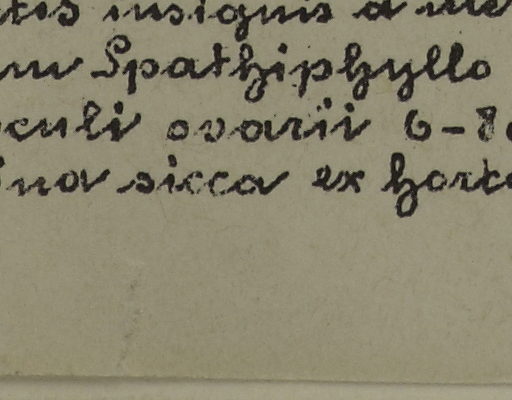 tis insignis a me
m Spathiphyllo
culi ovarii 6-8
ina sicca ex horto